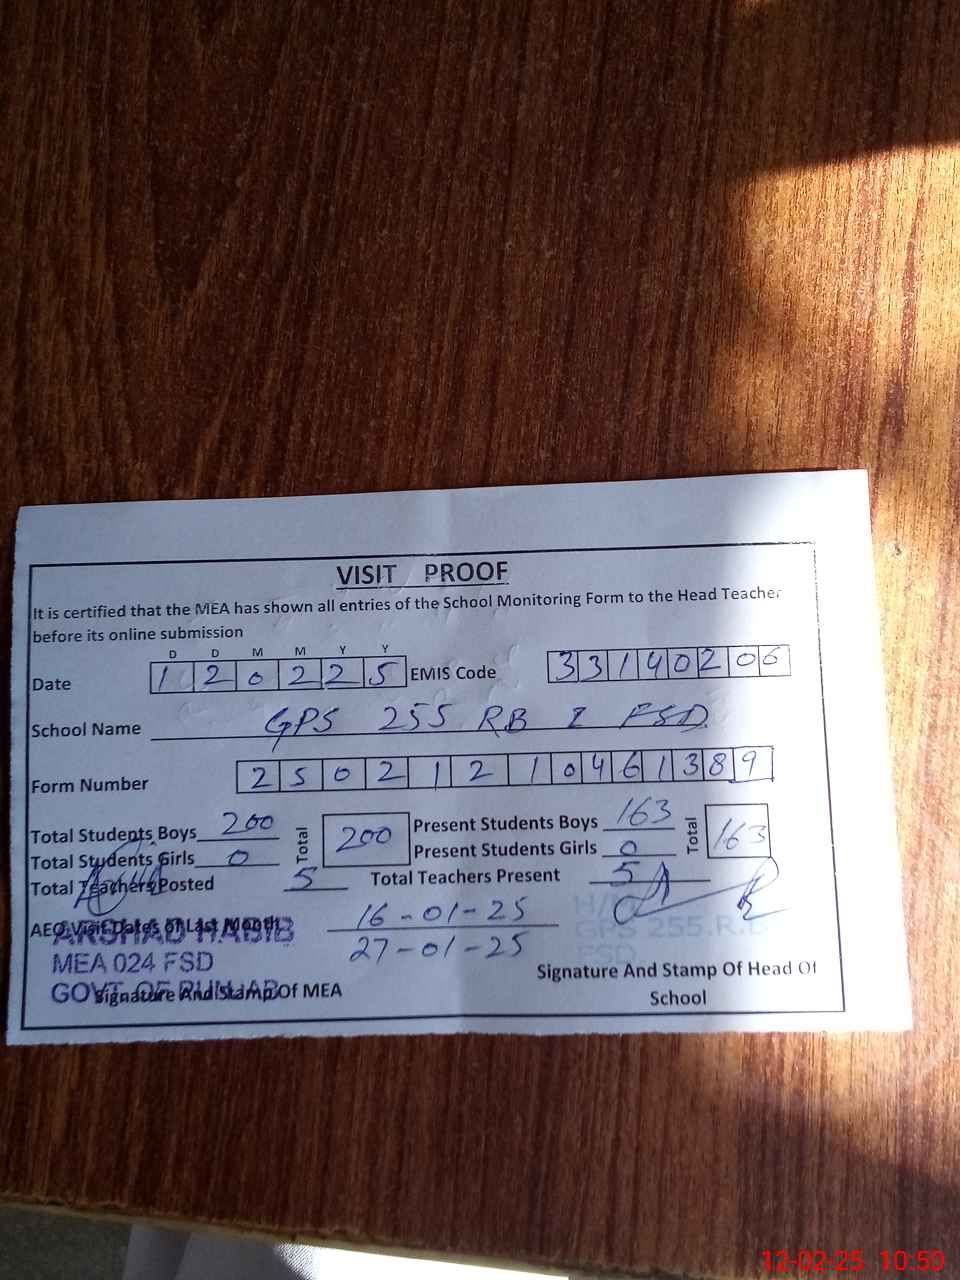 VISIT PROOF
It is certified that the MEA has shown all entries of the School Monitoring Form to the Head Teacher
before its online submission
D D M M Y Y
Date 1 2 0 2 2 5 EMIS Code 3 3 1 4 0 2 0 6
School Name GPS 255 RB I FSD.
Form Number 2 5 0 2 1 2 1 0 4 6 1 3 8 9
Total Students Boys 200 Total 200 Present Students Boys 163 Total 163
Total Students Girls 0 Present Students Girls 0
Total Teachers Posted 5 Total Teachers Present 5
AEO Visit Dates of Last Month 16-01-25
27-01-25
ARSHAD HABIB
MEA 024 FSD
GOVT. OF PUNJAB
Signature And Stamp Of MEA
GPS 255.R.B
FSD.
Signature And Stamp Of Head Of
School
12-02-25 10:50